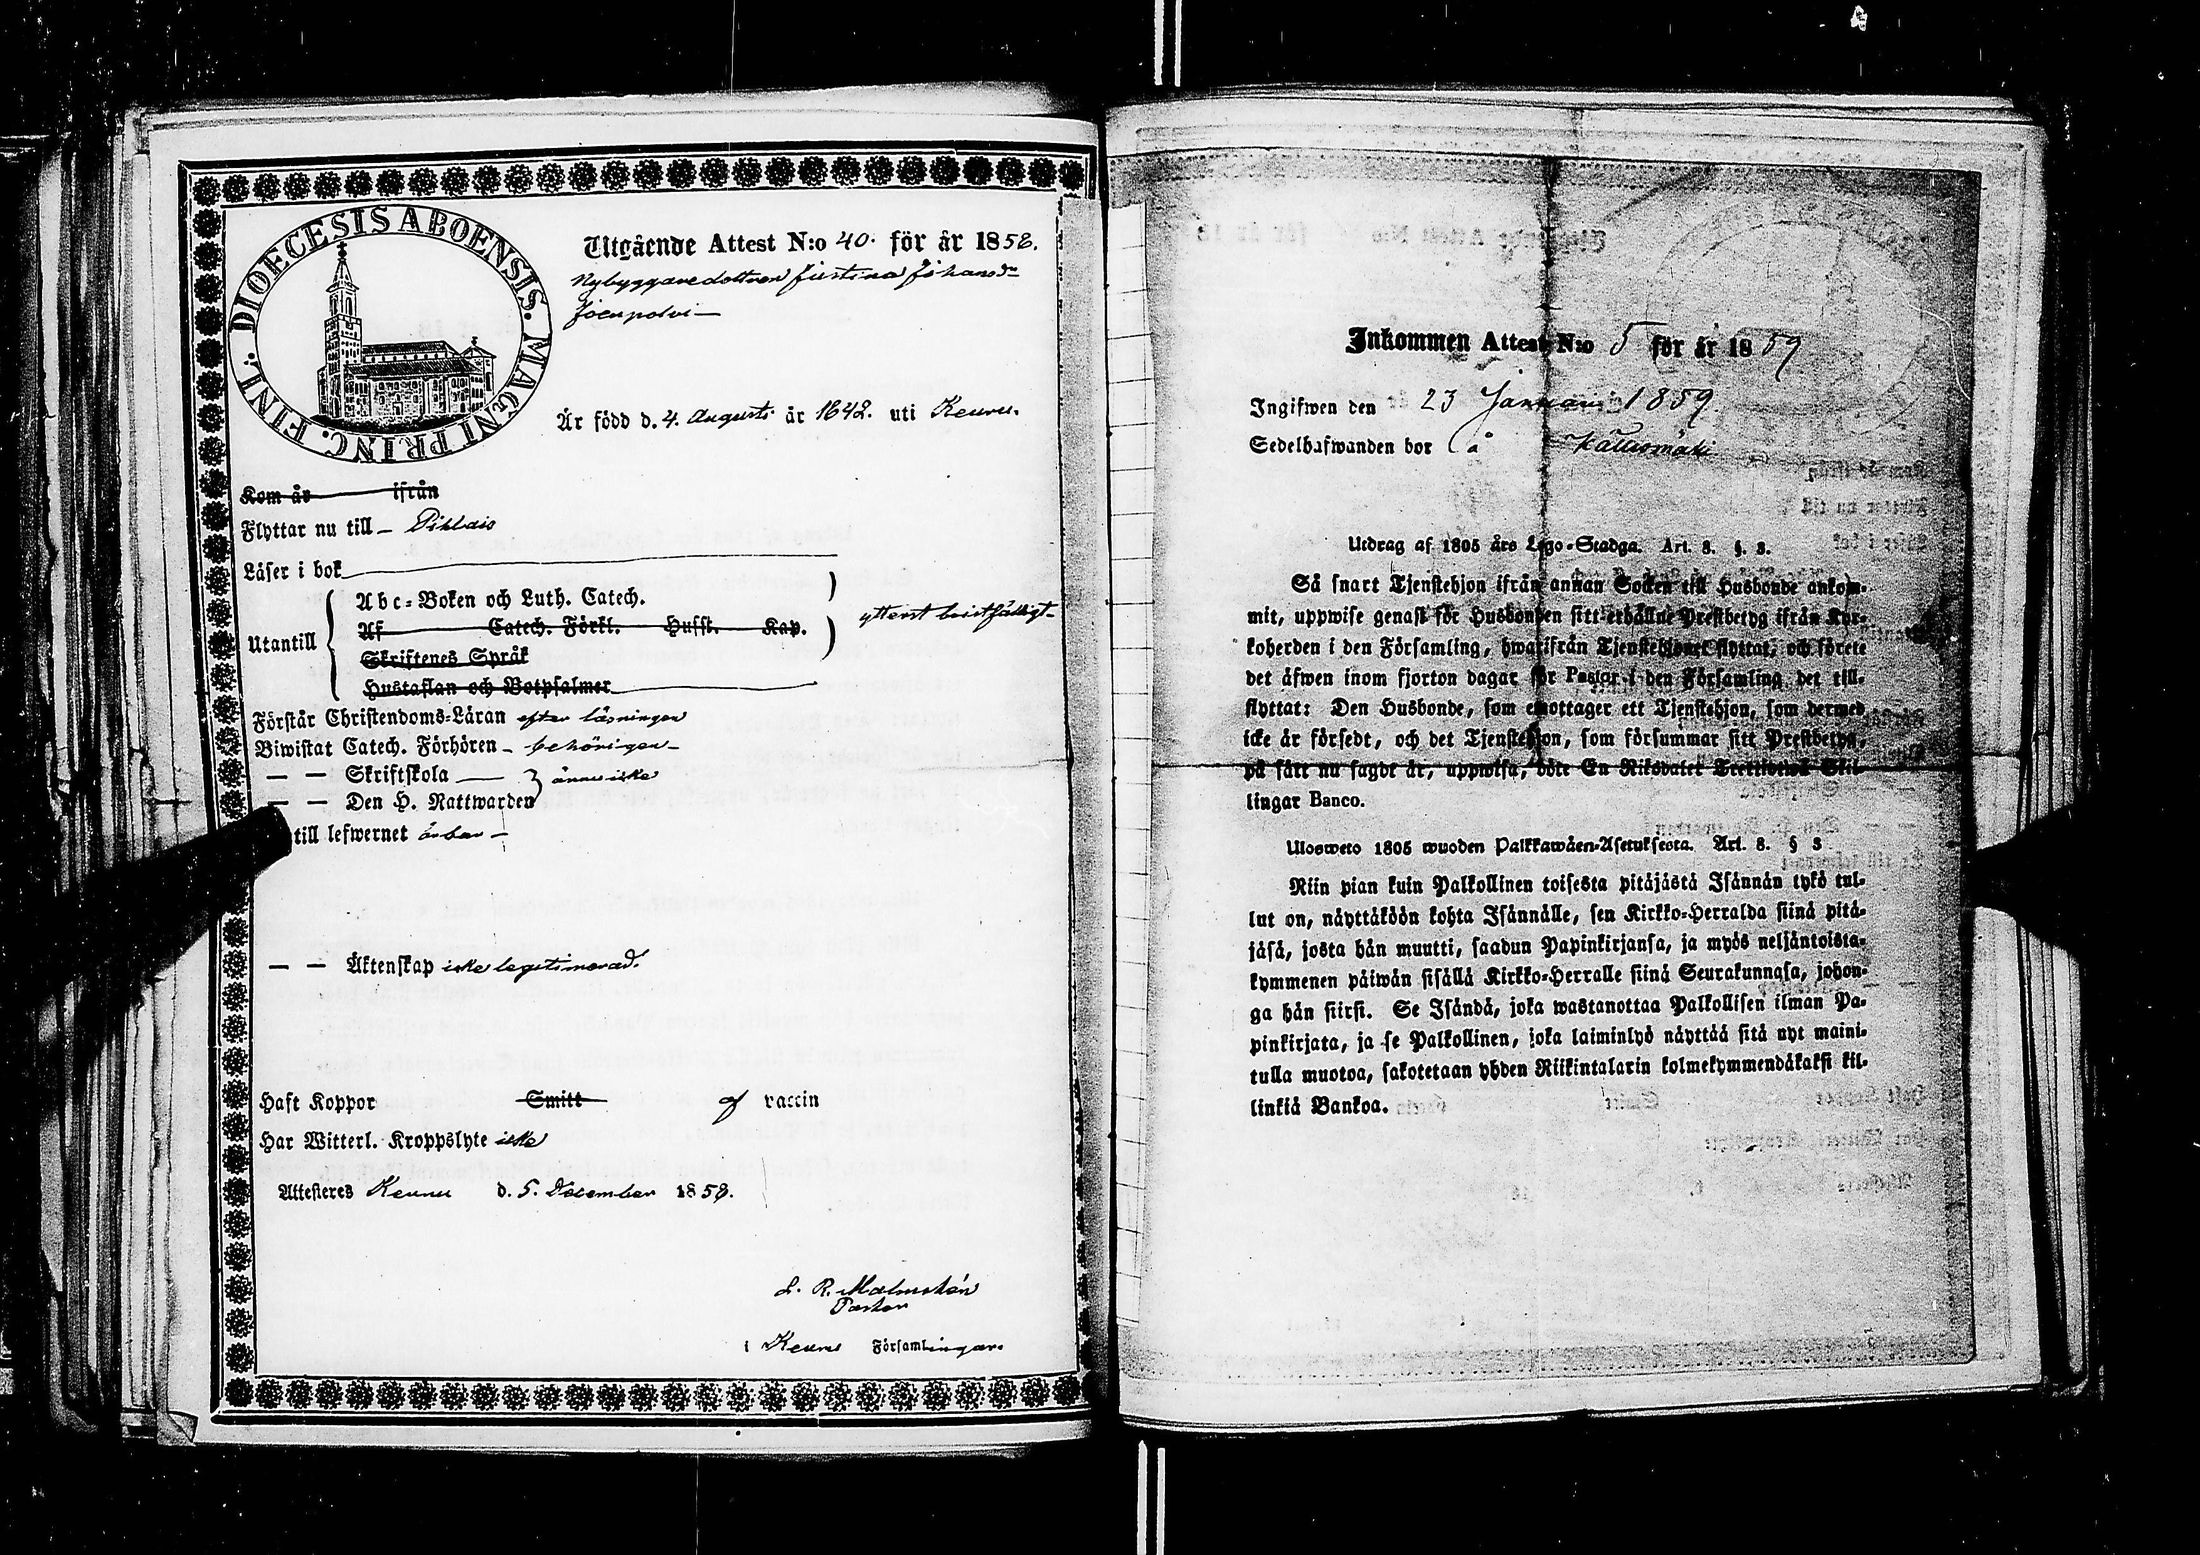 DIOECESIS ABOENSIS. MAGNI PRINC. FINL.
Utgående Attest N:o 40. för år 1858.
Nybyggaredottren Justina Johansdr
Joenpolvi —
Är född d. 4. Augusti år 1842. uti Keuru.
Kom år ifrån
Flyttar nu till — Pihlais
Läser i bok
Utantill
Abc-Boken och Luth. Catech.
Af Catech. Förkl. Husst. Kap.
Skriftenes Språk
Hustaflan och Botpsalmer
ytterst bristfälligt
Förstår Christendoms-Läran efter läsningen
Biwistat Catech. Förhören — behörigen —
— — Skriftskola — ännu icke
— — Den H. Nattwarden
till lefwernet ärbar —
— — Äktenskap icke legitimerad.
Haft Koppor Smitt af vaccin
Har Witterl. Kroppslyte icke
Attesteres Keuru d. 5. December 1858.
L. R. Malmstén
Pastor
i Keuru Församlingar.
Inkommen Attest N:o 5 för år 1859
Ingifwen den 23 Januari 1859
Sedelhafwanden bor å
Utdrag af 1805 års Lego-Stadga. Art. 8. §. 3.
Så snart Tjenstehjon ifrån annan Socken till Husbonde ankom-
mit, uppwise genast för Husbonden sitt erhållne Prestbetyg ifrån Kyr-
koherden i den Församling, hwarifrån Tjenstehjonet flyttat, och förete
det äfwen inom fjorton dagar för Pastor i den Församling det till-
flyttat: Den Husbonde, som emottager ett Tjenstehjon, som dermed
icke är försedt, och det Tjenstehjon, som försummar sitt Prestbetyg,
på sätt nu sagdt är, uppwisa, böte En Riksdaler Trettiotwå Skil-
lingar Banco.
Ulosweto 1805 wuoden Palkkawäen-Asetuksesta. Art. 8. § 3
Niin pian kuin Palkollinen toisesta pitäjästä Isännän tykö tul-
lut on, näyttäköön kohta Isännälle, sen Kirkko-Herralda siinä pitä-
jäsä, josta hän muutti, saadun Papinkirjansa, ja myös neljäntoista-
kymmenen päiwän sisällä Kirkko-Herralle siinä Seurakunnasa, johon-
ga hän siirsi. Se Isändä, joka wastanottaa Palkollisen ilman Pa-
pinkirjata, ja se Palkollinen, joka laiminlyö näyttää sitä nyt maini-
tulla muotoa, sakotetaan yhden Riikintalarin kolmekymmendäkaksi kil-
linkiä Bankoa.